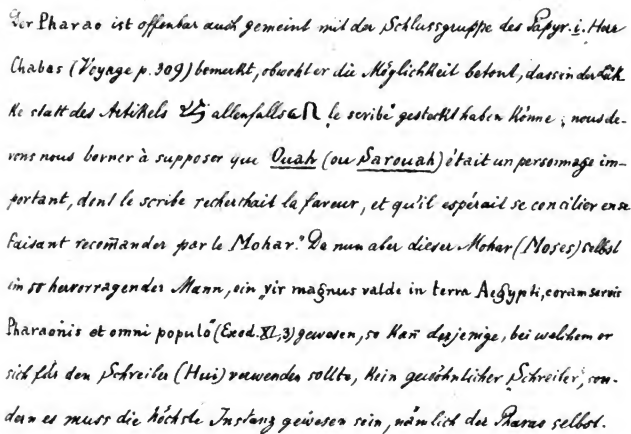 Der Pharao ist offenbar auch gemeint mit der Schlussgruppe des Papyr. i. Herr
Chabas (Voyage p. 309) bemerkt, obwohl er die Möglichkeit betont, dass in der Lük
ke statt des Artikels allenfalls le scribe gesteckt haben könne; nous de-
vons nous borner à supposer que Ouah (ou Sarouah) était un personnage im-
portant, dont le scribe recherchait la faveur, et qu'il espérait se concilier en se
faisant recom̄ander par le Mohar." Da nun aber dieser Mohar (Moses) selbst
ein so hervorragender Mann, ein „vir magnus valde in terra Aegypti, coram servis
Pharaonis et omni populo" (Exod. XI, 3) gewesen, so kan̄ derjenige, bei welchem er
sich für den Schreiber (Hui) verwenden sollte, kein gewöhnlicher Schreiber, son-
dern es muss die höchste Instanz gewesen sein, nämlich der Pharao selbst.